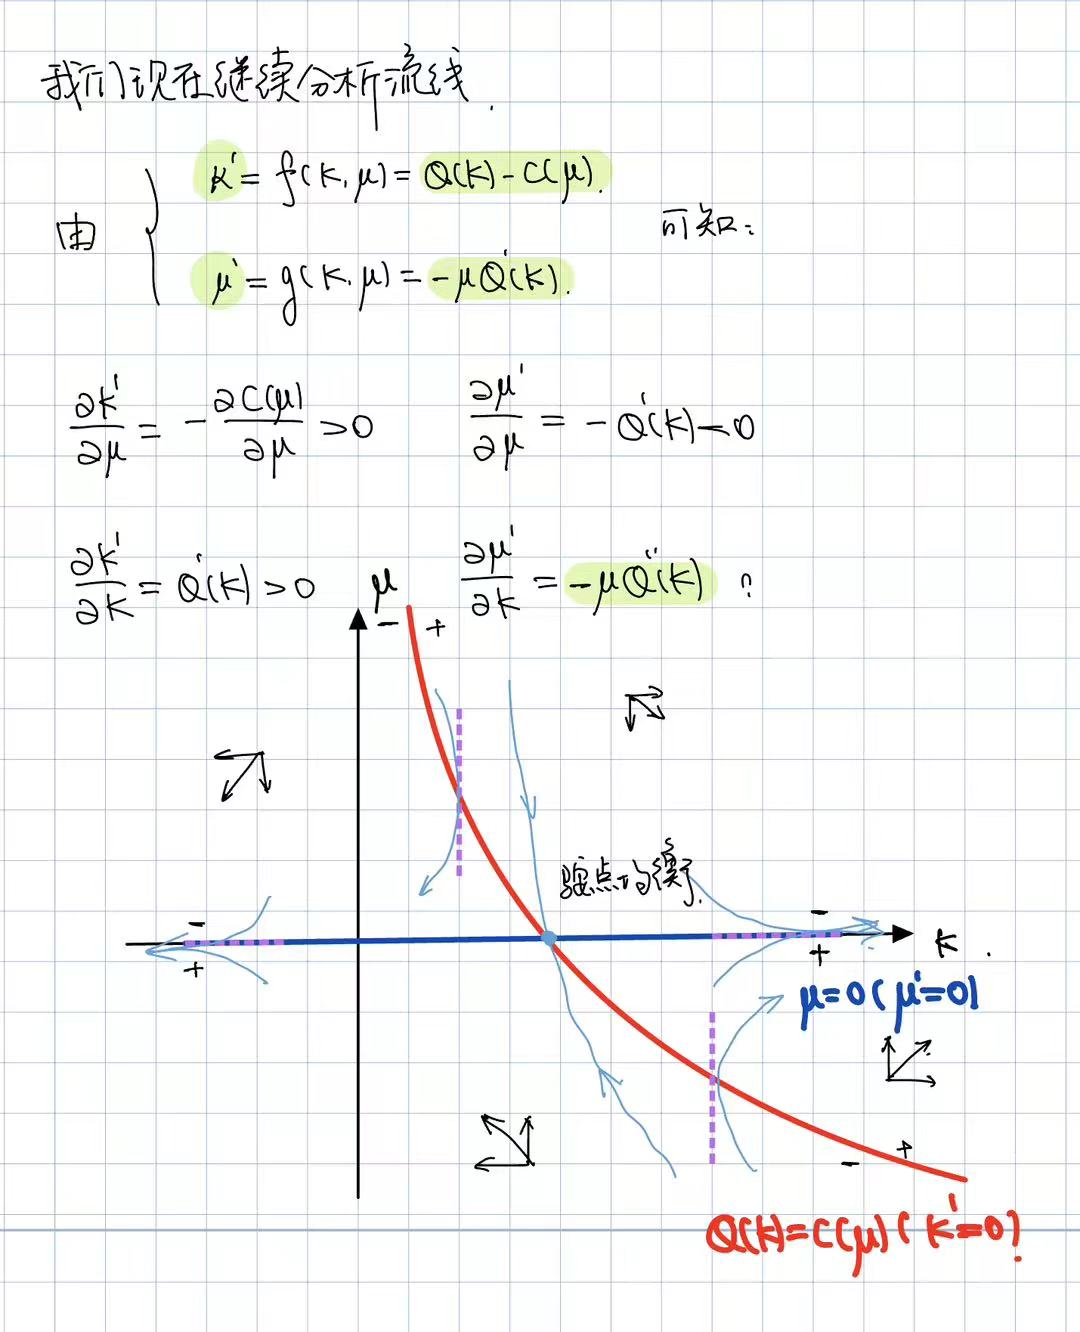 我们现在继续分析流线.
由 { K' = f(K, μ) = Q(K) - C(μ). 可知:
μ' = g(K, μ) = -μQ'(K).
∂K'/∂μ = - ∂C(μ)/∂μ > 0 ∂μ'/∂μ = - Q'(K) < 0
∂K'/∂K = Q'(K) > 0 ∂μ'/∂K = -μQ''(K) ?
μ
- +
鞍点均衡.
- -
+ +
K.
μ=0 (μ'=0)
- +
Q(K)=C(μ) (K'=0)